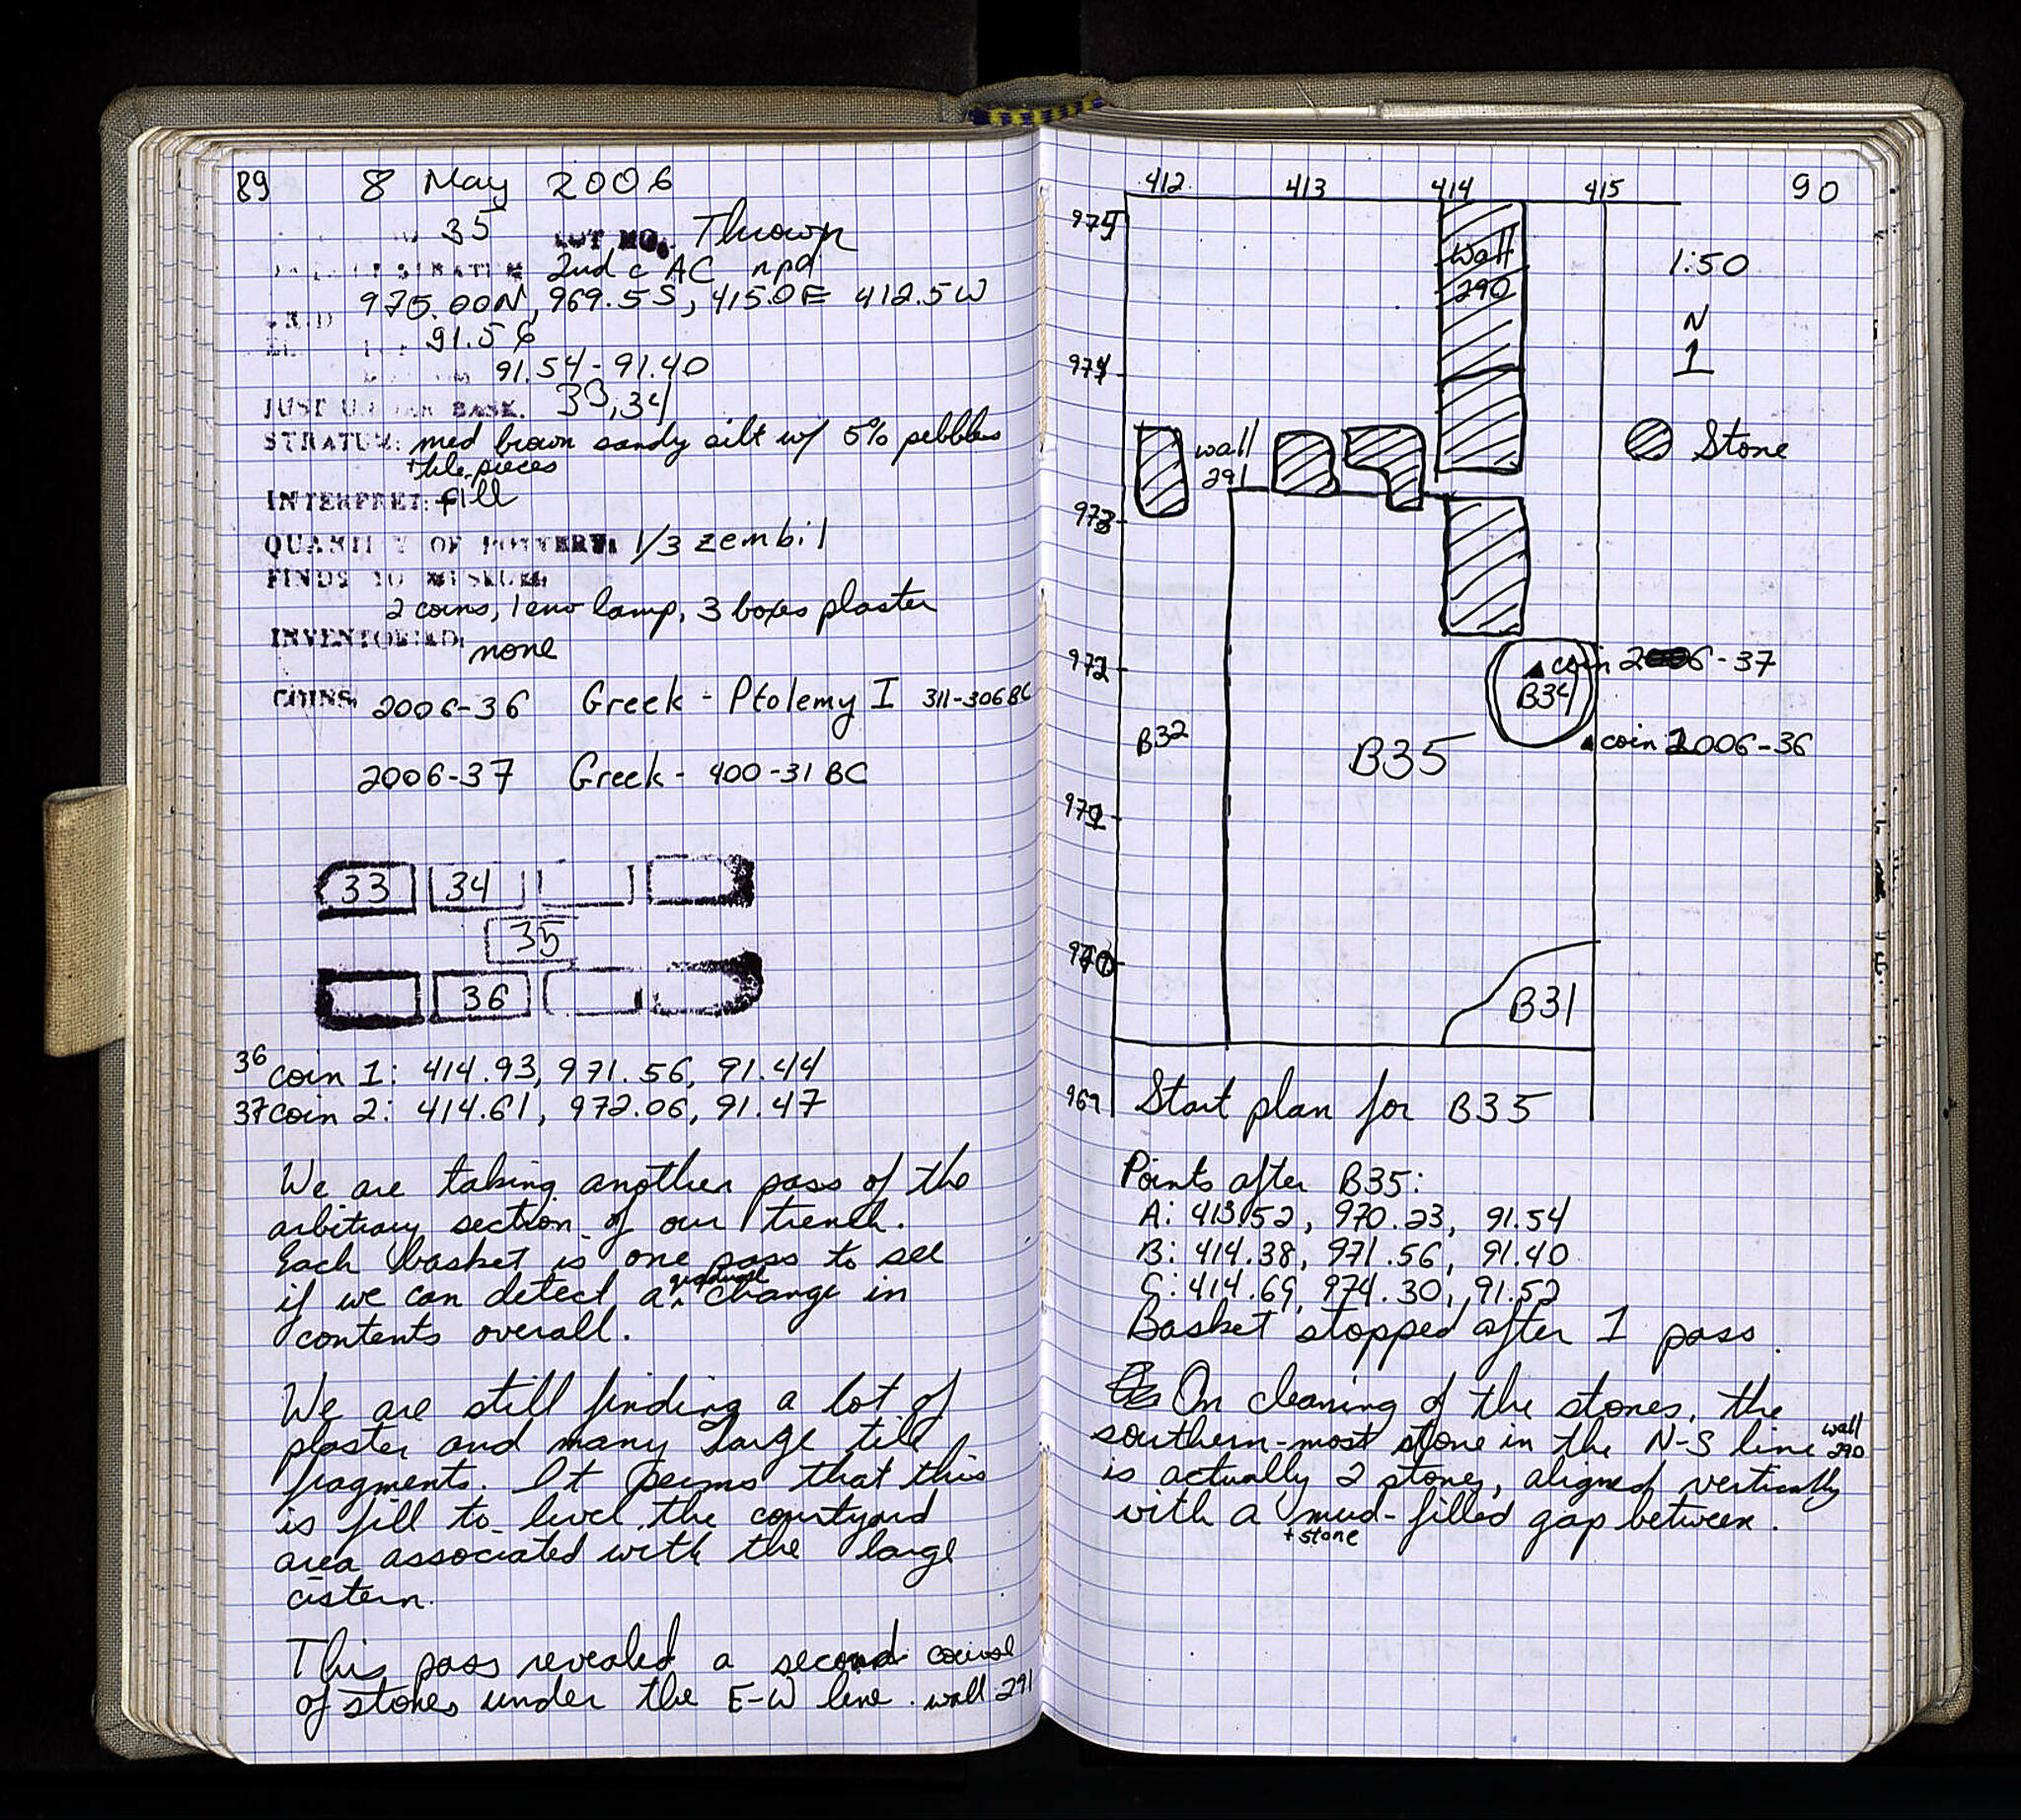 89 8 May 2006
35 LOT NO. Thrown
STRATUM 2nd c AC npd
GRID 975.00N, 969.5S, 415.0E 412.5W
91.56
91.54-91.40
JUST UNDER BASK. 33,34
STRATUM: med brown sandy silt w/ 5% pebbles
+ tile pieces
INTERPRET: fill
QUANTITY OF POTTERY: 1/3 zembil
FINDS TO MUSEUM:
2 coins, 1 env lamp, 3 boxes plaster
INVENTORIED: none
COINS: 2006-36 Greek - Ptolemy I 311-306 BC
2006-37 Greek - 400-31 BC
33 34
35
36
36 coin 1: 414.93, 971.56, 91.44
37 coin 2: 414.61, 972.06, 91.47
We are taking another pass of the
arbitrary section of our trench.
Each basket is one pass to see
if we can detect a gradual change in
contents overall.
We are still finding a lot of
plaster and many large tile
fragments. It seems that this
is fill to level the courtyard
area associated with the large
cistern.
This pass revealed a second course
of stones under the E-W line. wall 291
412 413 414 415 90
975
wall
290
1:50
N
974
wall
291
Stone
973
972
coin 2006-37
B34
B32
B35
coin 2006-36
971
970
B31
969
Start plan for B35
Points after B35:
A: 413.52, 970.23, 91.54
B: 414.38, 971.56, 91.40
C: 414.69, 974.30, 91.52
Basket stopped after 1 pass.
On cleaning of the stones, the
southern-most stone in the N-S line wall 290
is actually 2 stones, aligned vertically
with a mud-filled gap between.
+ stone